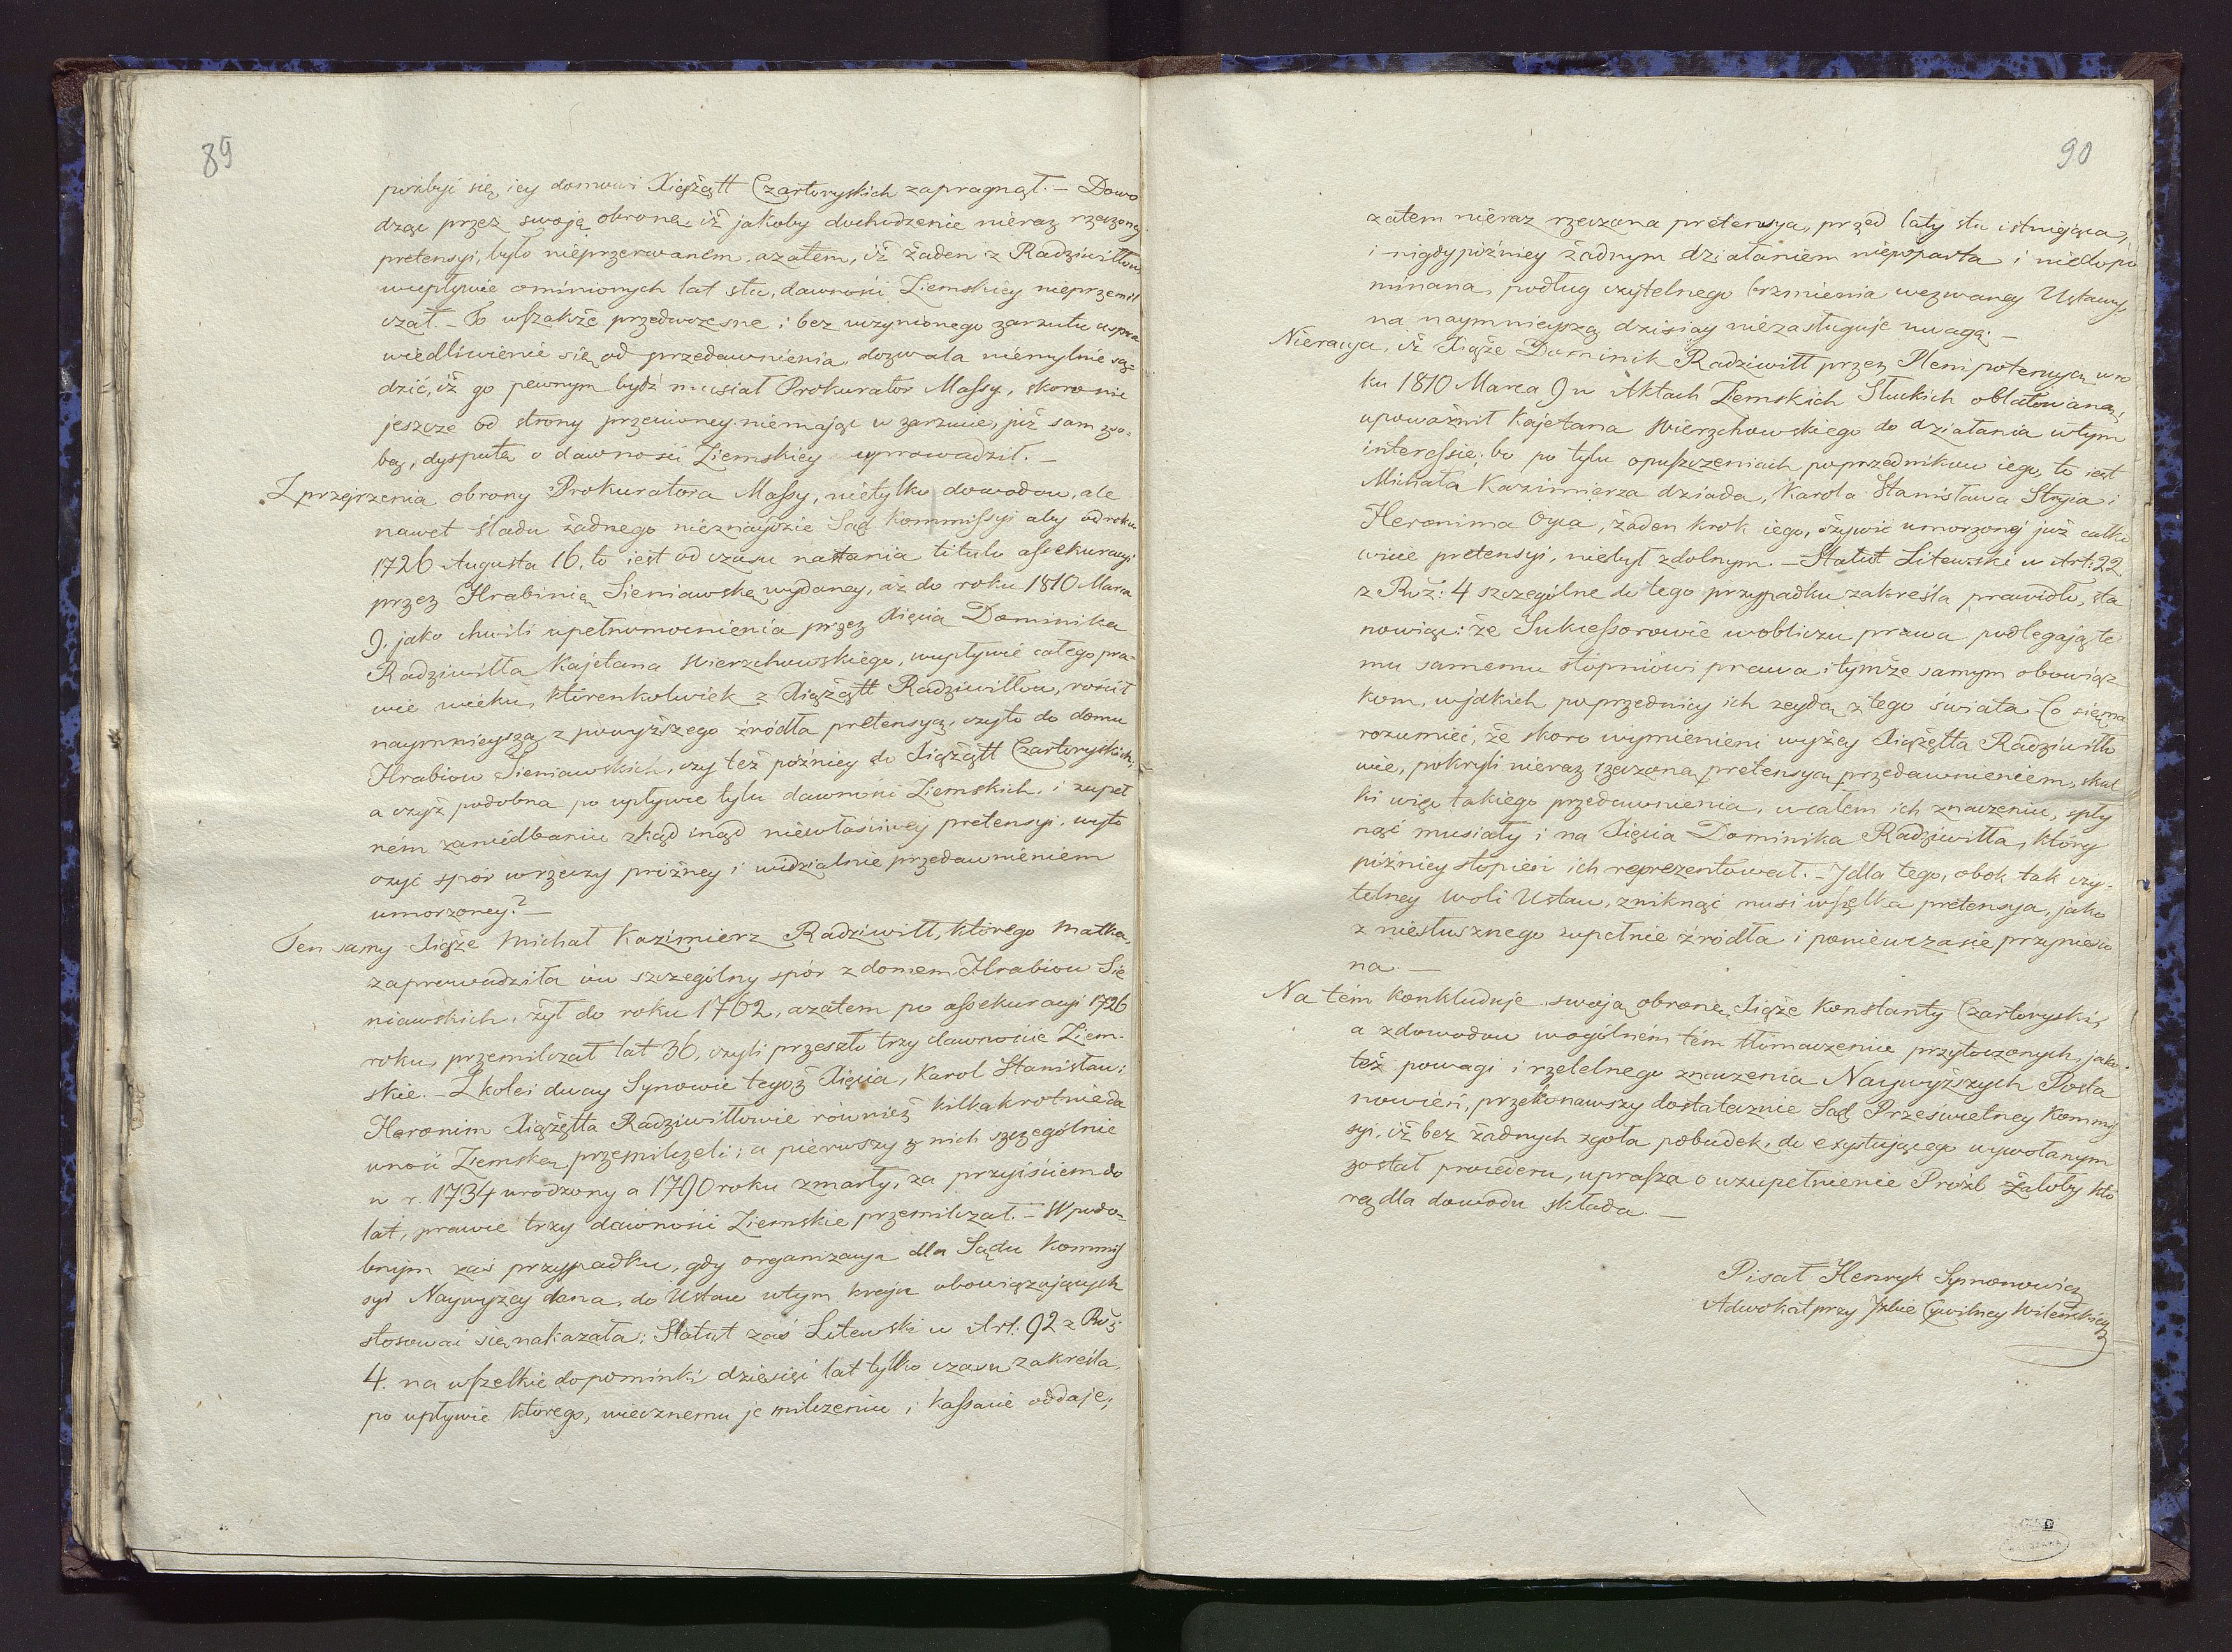 89
pozbyć się iey domowi Xiążątt Czartoryskich zapragnął. — Dowo
dząc przez swoją obronę, iż jakoby dochodzenie nieraz rzeczoney
pretensyi, było nieprzerwanem, azatem, iż żaden z Radziwiłłow,
wupływie ominionych lat stu, dawności Ziemskiey nieprzemil
czał. — To wszakże przedwczesne i bez uczynionego zarzutu uspra
wiedliwienie się od przedawnienia, dozwala niemylnie są-
dzić, iż go pewnym bydź musiał Prokurator Massy, skoro nie
jeszcze od strony przeciwney niemając w zarzucie, już sam z so-
bą, dysputę o dawności Ziemskiey uprowadził. —
Z przejrzenia obrony Prokuratora Massy, nietylko dowodow, ale
nawet śladu żadnego nieznaydzie Sąd Kommissyi aby od roku
1726 Augusta 16, to iest od czasu nastania titulo assekuracyi
przez Hrabinię Sieniawskę wydaney, aż do roku 1810 Marca
9, jako chwili upełnomocnienia przez Xięcia Dominika
Radziwiłła Kajetana Wierzchowskiego, wupływie całego pra-
wie wieku, którenkolwiek z Xiążątt Radziwiłłow, rościł
naymnieyszą z powyższego źródła pretensyą, czyto do domu
Hrabiow Sieniawskich, czy też poźniey do Xiążątt Czartoryskich,
a czyż podobna po upływie tylu dawności Ziemskich, i zupeł
ném zaniedbaniu zkąd inąd niewłaściwey pretensyi, wyto
czyć spór wrzeczy próżney i widzialnie przedawnieniem
umorzoney? —
Ten samy Xiąże Michał Kazimierz Radziwiłł, którego Matka,
zaprowadziła ów szczególny spór z domem Hrabiow Sie
niawskich, żył do roku 1762, azatem po assekuracyi 1726
roku, przemilczał lat 36, czyli przeszło trzy dawności Ziem-
skie. — Z kolei dway Synowie tegoż Xięcia, Karol Stanisław i
Heronim Xiążętta Radziwiłłowie również kilkakrotnie da
wność Ziemską przemilczeli; a pierwszy z nich szczególnie
w r. 1734 urodzony a 1790 roku zmarły, za przyiściem do
lat, prawie trzy dawności Ziemskie przemilczał. — W podo-
bnym zaś przypadku, gdy organizacya dla Sądu Kommis
syi Naywyżey dana, do Ustaw wtym kraju obowiązujących
stosować się nakazała; Statut zaś Litewski w Art: 92 z Roz:
4. na wszelkie dopominki dziesięć lat tylko czasu zakreśla,
po upływie którego, wiecznemu je milczeniu i kassacie oddaje;
90
zatem nieraz rzeczona pretensya, przed laty stu istniejąca,
i nigdy poźniey żadnym działaniem niepoparta i niedopo
minana, podług czytelnego brzmienia wezwaney Ustawy,
na naymnieyszą dzisiay niezasługuje uwagę. —
Nieracya, iż Xiąże Dominik Radziwiłł przez Plenipotencyą w ro
ku 1810 Marca 9 w Aktach Ziemskich Słuckich oblatowaną,
upoważnił Kajetana Wierzchowskiego do działania wtym
interessie; bo po tylu opuszczeniach poprzednikow iego, to iest
Michała Kazimierza dziada, Karola Stanisława Stryia i
Heronima Oyca, żaden krok iego, ożywić umorzoney już całko
wicie pretensyi, niebył zdolnym. — Statut Litewski w Art: 22
z Roz: 4 szczególne do tego przypadku zakreśla prawidło, sta
nowiąc: że Sukcessorowie wobliczu prawa podlegają te
mu samemu stopniowi prawa i tymże samym obowiąz
kom, w jakich poprzednicy ich zeydą z tego świata. Co się ma
rozumieć, że skoro wymienieni wyżey Xiążętta Radziwiłło
wie, pokryli nieraz rzeczoną pretensyą przedawnieniem, skut
ki więc takiego przedawnienia, wcałem ich znaczeniu, spły
nąć musiały i na Xięcia Dominika Radziwiłła, który
poźniey stopień ich reprezentował. — I dla tego, obok tak czy-
telney woli Ustaw, zniknąć musi wszelka pretensya, jako
z niesłusznego zupełnie źródła i poniewczasie przyniesio
na. —
Na tém konkluduje swoją obronę Xiąże Konstanty Czartoryski,
a zdowodow wogólném tém tłómaczeniu przytoczonych, jako
też powagi i rzetelnego znaczenia Naywyższych Posta
nowień, przekonawszy dostatecznie Sąd Prześwietney Kommis
syi, iż bez żadnych zgoła pobudek, do exystującego wywołanym
został procederu, uprasza o uzupełnienie Próźb Żałoby któ
rą dla dowodu składa. —
Pisał Henryk Symonowicz
Adwokat przy Izbie Cywilney Wileńskiey